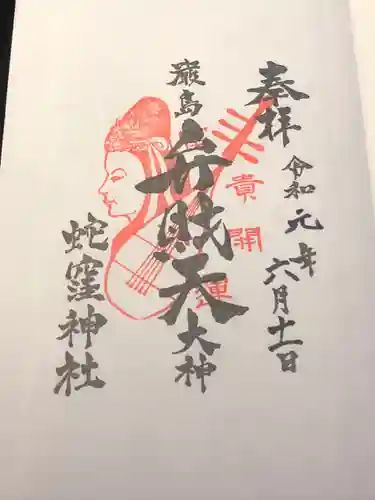 奉拝
令和元年六月十一日
厳島
弁財天
大神
開運
蛇窪神社